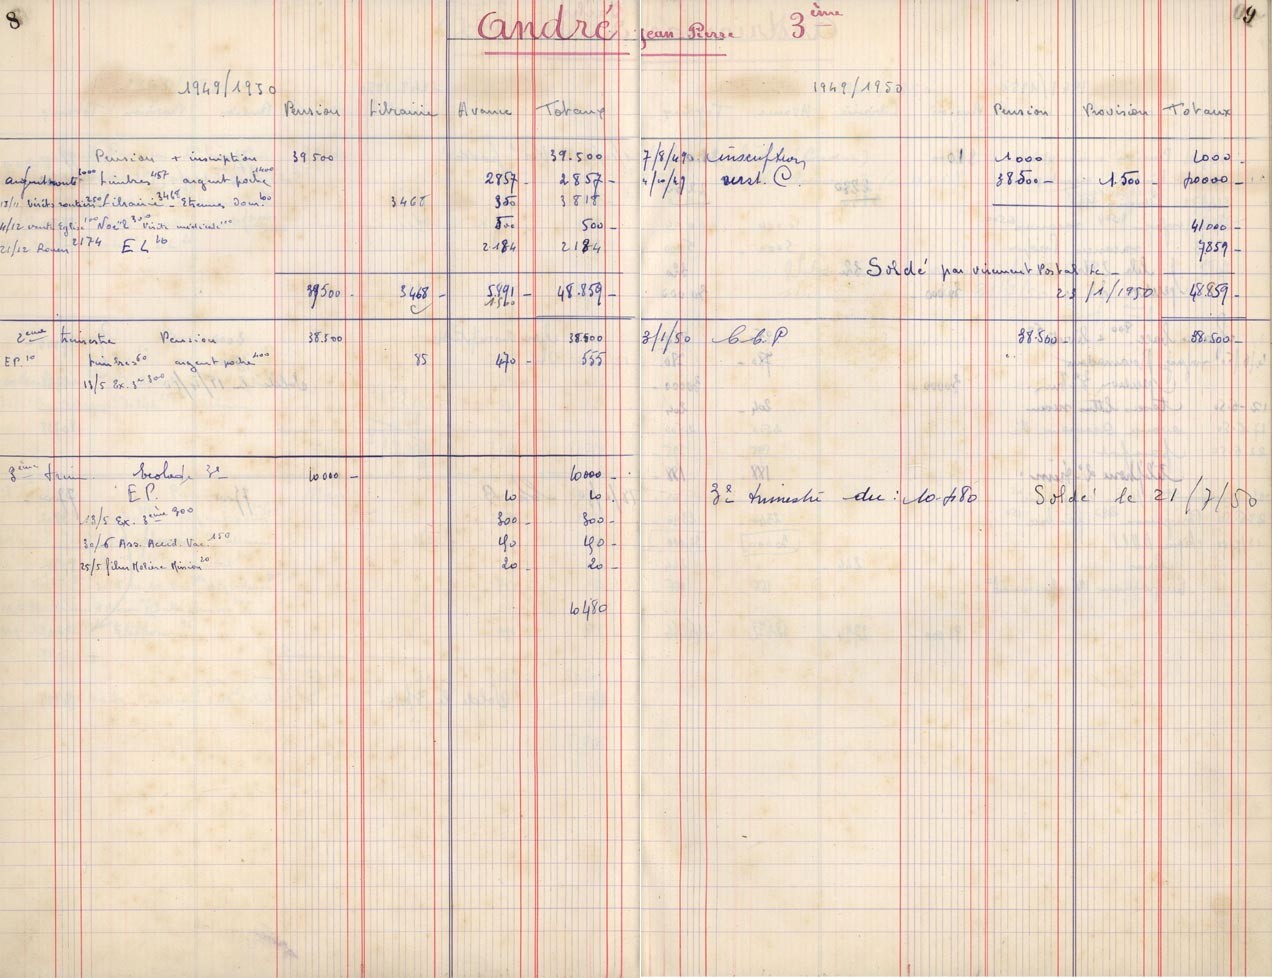 8
André Jean Pierre 3ème
9
1949/1950
Pension Librairie Avance Totaux
Pension + inscription 39500 39.500
1000 timbres 457 argent poche 1400 2857- 2857-
Librairie 3468 - Etrennes dom. 3468 350 3818
Noël 300 Visite médicale 500 500-
21/12 Rouen 2174 EL 10 2184 2184
39500- 3468- 5891- 48.859-
2ème trimestre Pension 38.500 38500
EP. 10 timbres 60 argent poche 400 85 470- 555
13/5 Ex. 3e 300
3ème Trim. Scolarité 3e 10000- 10000-
E.P. 10 10
13/5 Ex. 3ème 300 300- 300-
30/6 Ass. Accid. Vac. 150 150- 150-
25/5 film Molière Mission 20 20- 20-
10480
1949/1950
Pension Provision Totaux
7/8/49 inscription 1000 1000-
4/10/49 verst. C. 38.500- 1.500- 40000-
41000-
7859-
Soldé par virement Postal le
23/1/1950 48.859-
3/1/50 C.C.P 38.500- 38.500-
3e trimestre du: 10.480 Soldé le 21/7/50